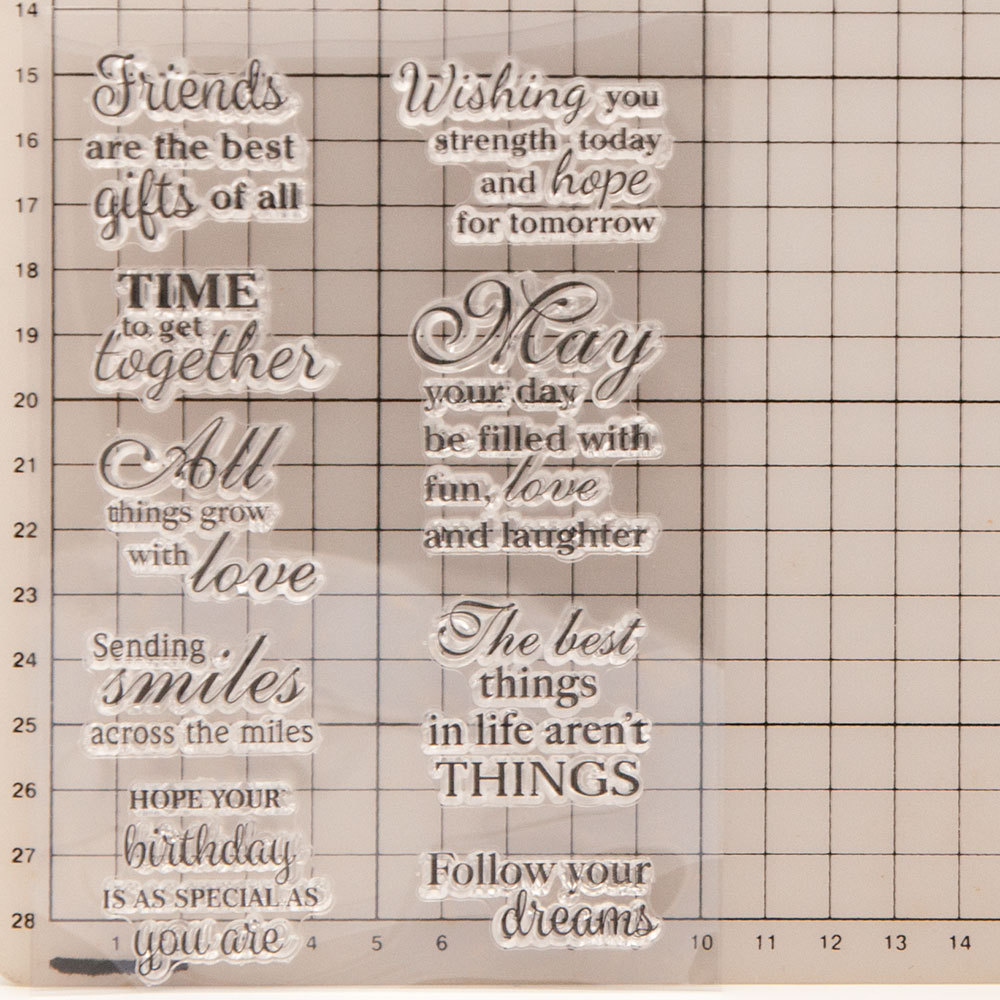 Friends
are the best
gifts of all
TIME
to get
together
All
things grow
with love
Sending
smiles
across the miles
HOPE YOUR
birthday
IS AS SPECIAL AS
you are
Wishing you
strength today
and hope
for tomorrow
May
your day
be filled with
fun, love
and laughter
The best
things
in life aren't
THINGS
Follow your
dreams
14
15
16
17
18
19
20
21
22
23
24
25
26
27
28
1 4 5 6 10 11 12 13 14